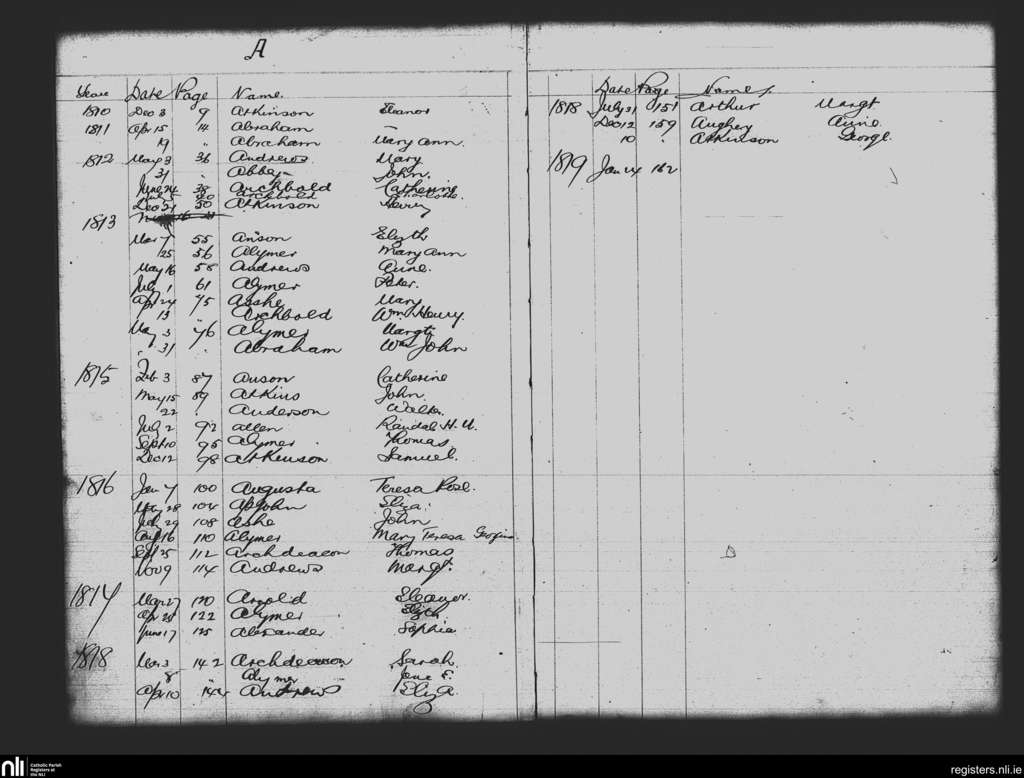 A
Year Date Page Name.
1810 Dec 3 9 Atkinson Eleanor
1811 Apr 15 14 Abraham —
19 " Abraham Mary Ann.
1812 May 3 36 Andrews. Mary
31 . Abbey John.
June 24 38 Archbold Catherine
Archbold Charlotte.
Dec 21 50 Atkinson Henry
1813
Mar 7 55 Anson Elizth
25 56 Alymer Mary Ann
May 16 58 Andrews Anne.
July 1 61 Alymer Peter.
Apr 24 75 Asshe Mary
13 Archbold Wm Henry.
May 3 76 Alymer Margt
" 31 . Abraham Wm John
1815 Feb 3 87 Anson Catherine
May 15 89 Atkins John.
22 . Anderson Walter.
July 2 92 Allen Randal H. U.
Sept 10 95 Alymer Thomas
Dec 12 98 Atkinson Samuel.
1816 Jan 7 100 Augusta Teresa Rose.
May 28 104 ApJohn Eliza.
July 29 108 Ashe John
Aug 16 110 Alymer Mary Teresa Georgina
Sept 25 112 Archdeacon Thomas
Nov 9 114 Andrews Margt.
1817 Mar 27 120 Arnold Eleanor.
Apr 28 122 Alymer Elizth
June 17 125 Alexander Sophia
1818 Mar 3 142 Archdeacon Sarah.
8 " Alymer Jane E.
Apr 10 144 Andrews Eliza.
Date Page Name.
1818 July 31 151 Arthur Margt
Dec 12 159 Aughey Anne
10 " Atkinson George.
1819 Jan 24 162
nli Catholic Parish
Registers at
the NLI
registers.nli.ie